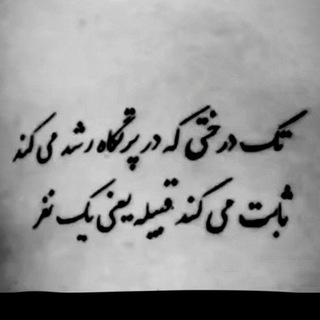 تک درختی که در پرتگاه رشد می کند
ثابت می کند قبیله یعنی یک نفر